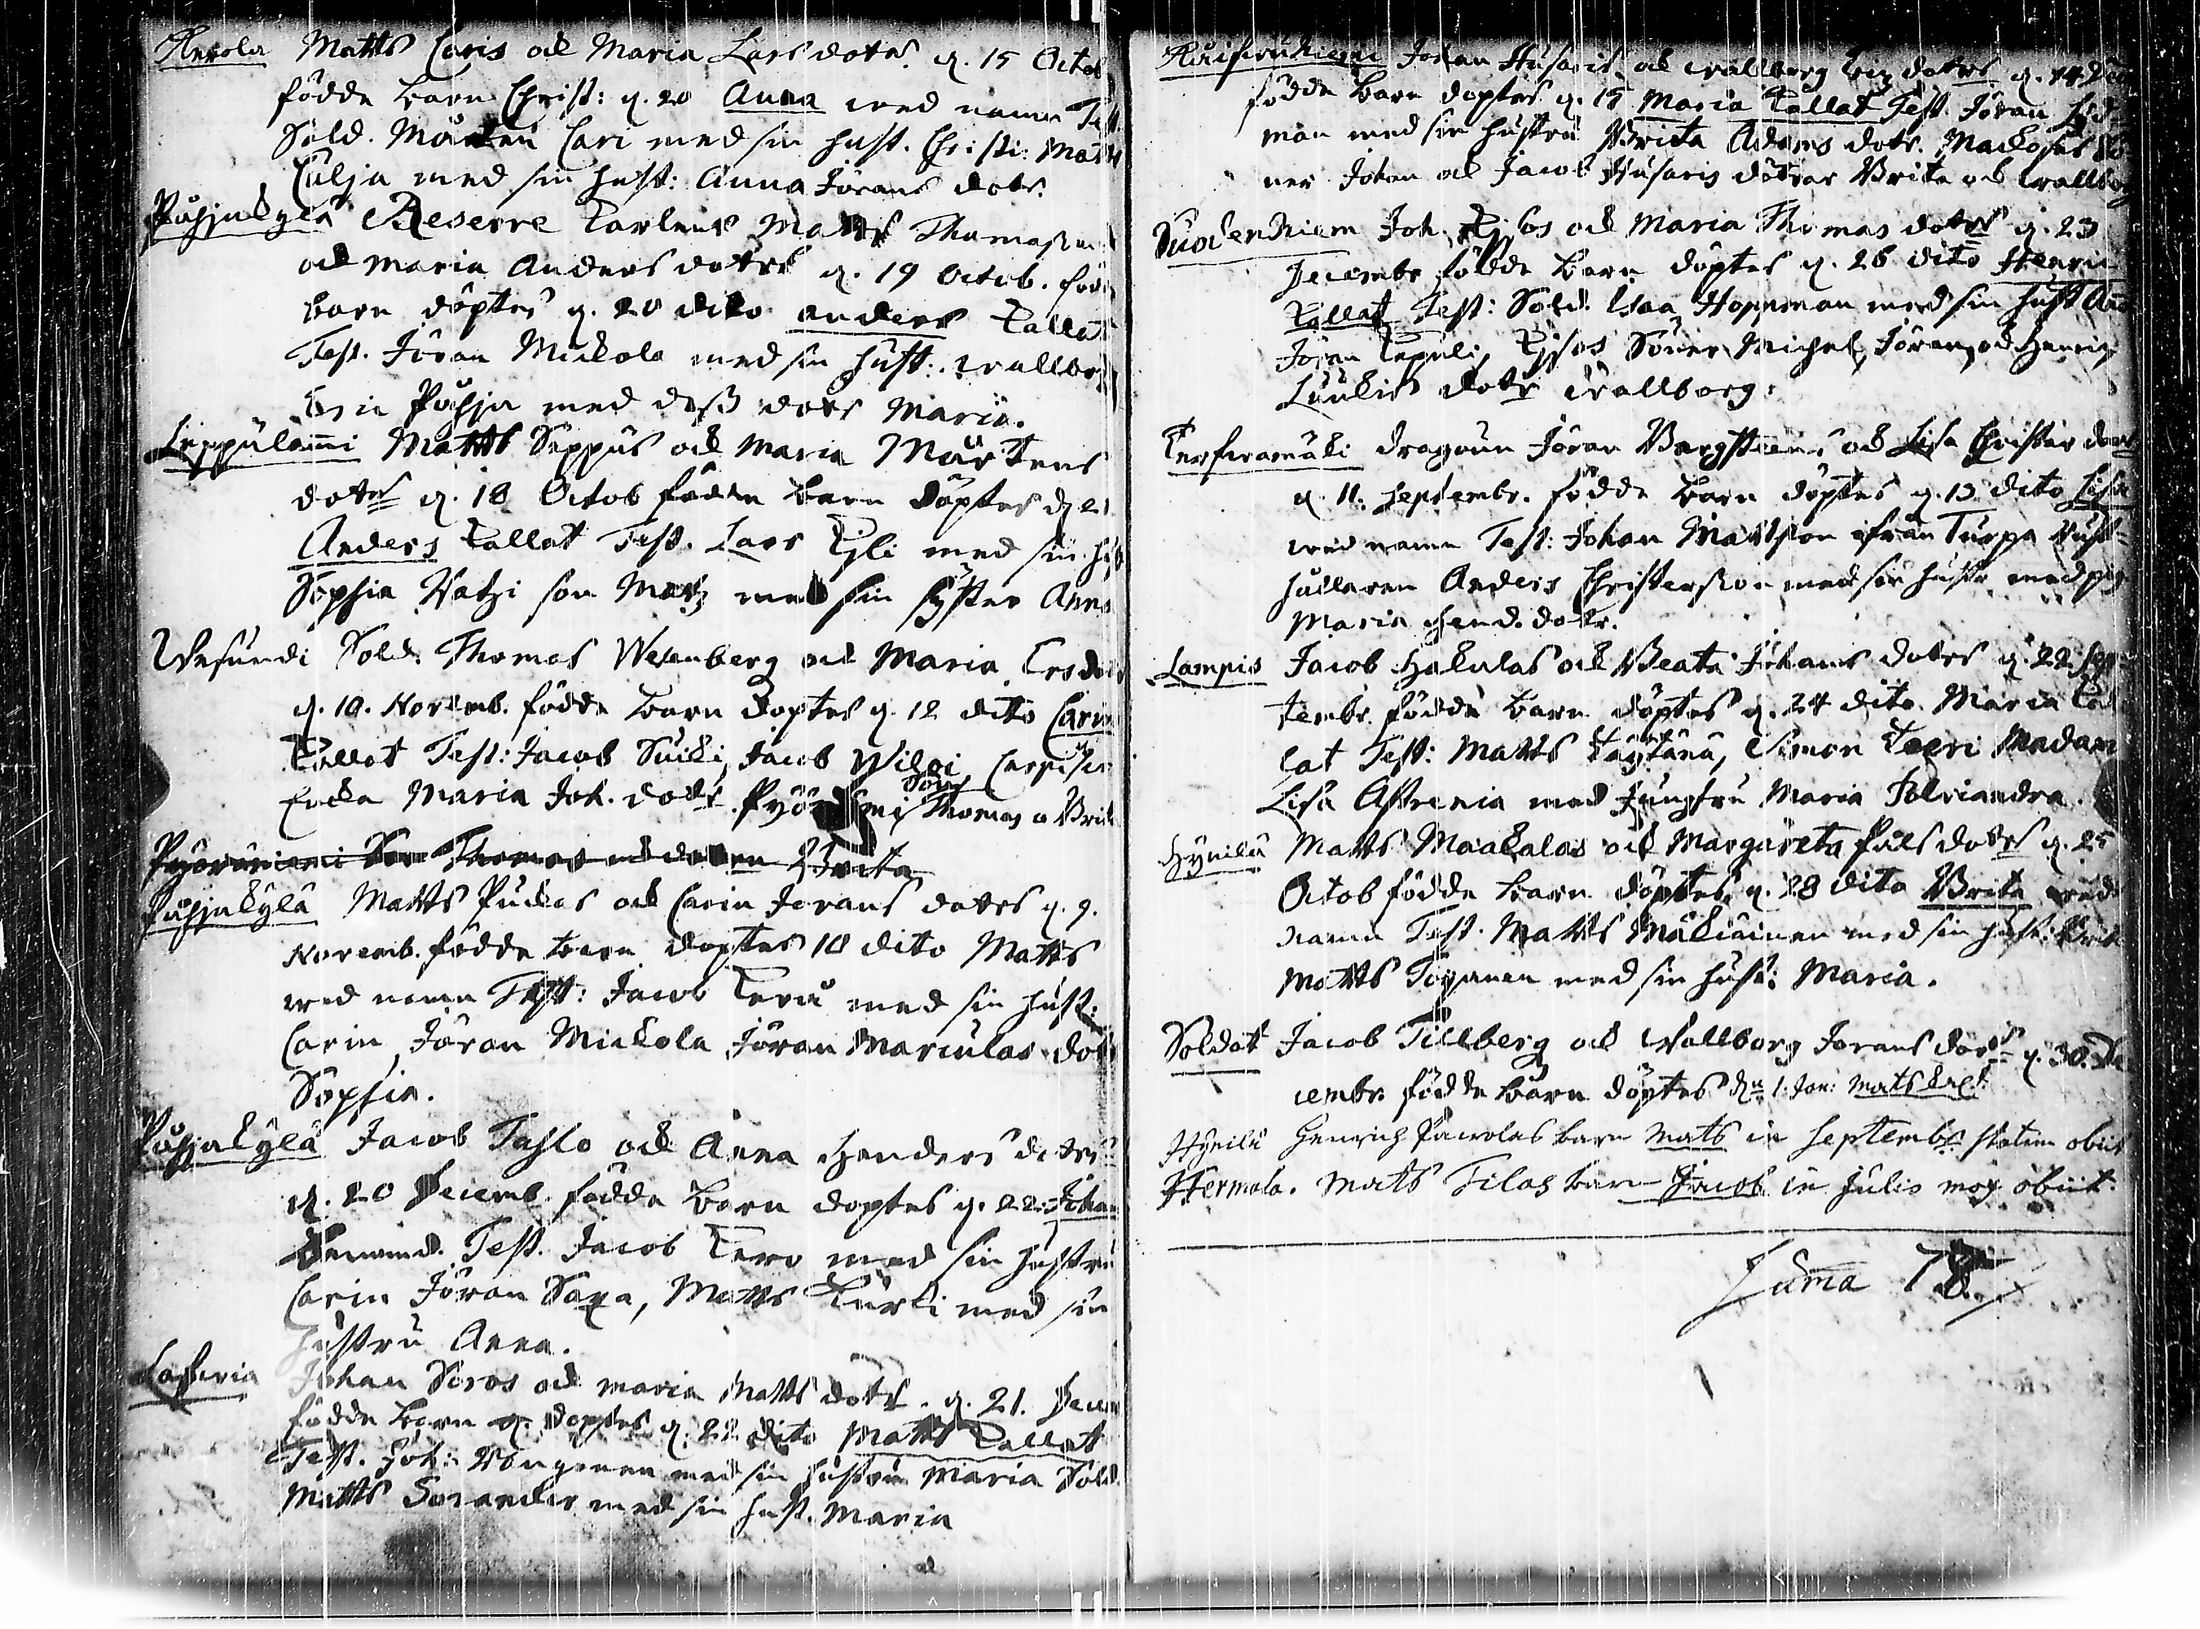 Kerola Matts Caris och Maria Lars dotrs d. 15 Octob
födde barn Christ: d. 20 Anna wed namn Test
Sold. Mårten Cari med sin hust. Christi: Matts
Culja med sin hust: Anna Jörans dotr.
Påhjakylä Reserve Karlens Matts Thomasson
och Maria Anders dotrs d. 19 Octob. född
barn döptes d. 20 dito anders kallat
Test. Jöran Mickola med sin hust: wallbor
Påhja med dess dotr Maria.
Leppülami Matts Seppus och Maria Mårtens
dotrs d. 18 Octob födde barn döptes d 21
Anders kallat Test. Lars Kyli med sin hust
Sophia Vatzi son Matz med sin syster Anna
Wesundi Sold: Thomas Wesenberg och Maria Ers dotrs
d. 10. Novemb. födde barn döptes d. 12 dito Carin
kallat Test: Jacob Suiki, Jacob Wilpi,
Maria Joh. dotr. Thomas o Brit
Pyöräniemi Son Thomas och dottren Brita
Påhjakylä Matts Puckas och Carin Jörans dotrs d. 9.
Novemb. födde barn döptes 10 dito Matts
wed namn Test: Jacob Kerä med sin hust:
Carin, Jöran Mickola, Jöran Marculas dotr
Sophia.
Påhjakylä Jacob Tahlo och Anna Henders dotrs
d. 20 Decemb. födde barn döptes d. 22. Johan
benemd. Test. Jacob Kero med sin hustru
Carin Jöran Saxa, Matts Kurki med sin
hustru Anna.
Johan Soros och maria Matts dotr. d. 21. Decem
födde barn döptes d. 22 dito Matts kallat
Test. Joh: med sin hustru Maria Sold
Matts Sorander med sin hust. Maria
Johan Husaris och wallborg dotrs d. 14
födde barn döptes d. 15 Maria kallat Test. Jöran
man med sin hustru Brita Adams dotr.
ner Johan och Jacob Husaris döttrar Brita och wallborg
Suodenniem Joh. och Maria Thomas dotrs d. 23
Decembr födde barn döptes d. 26 dito Henric
kallat Test: Sold. Isaa Hoppman med sin hust
Jöran Söner Michel, Jöran, och Henric
dotr wallborg.
dragoun Jöran Bergsteens och Lisa Christers dotr
d. 11. Septembr. födde barn döptes d. 13 dito Lisa
wed namn Test: Johan Mattsson ifrån Turpa Rust-
hållaren Anders Christersson med sin hustr med pig
Maria Hend. dotr.
Lampis Jacob Hakulas och Beata Johans dotrs d. 22 Sep
tembr. födde barn döptes d. 24 dito. Maria kal
lat Test: Matts Simon Teeri Madam
Lisa Astrenia med Jungfru Maria Polviandra.
Hynilä Matts Maakalas och Margareta Påls dotrs d. 25
Octob födde barn döptes d. 28 dito Brita wed
namn Test. Matts Mäkiäinen med sin hust: Brit
Matts Toyanen med sin hust: Maria.
Soldat Jacob Tillberg och Wallborg Jörans dotrs d. 30. De
cembr. födde barn döptes dn 1. Jan: Mats kal:
Hynilä Henrich Pawolas barn Mats in Septembr statim obiit
Hermola. Mats Tilas barn Jacob in Julio mox obiit.
Suma 78.